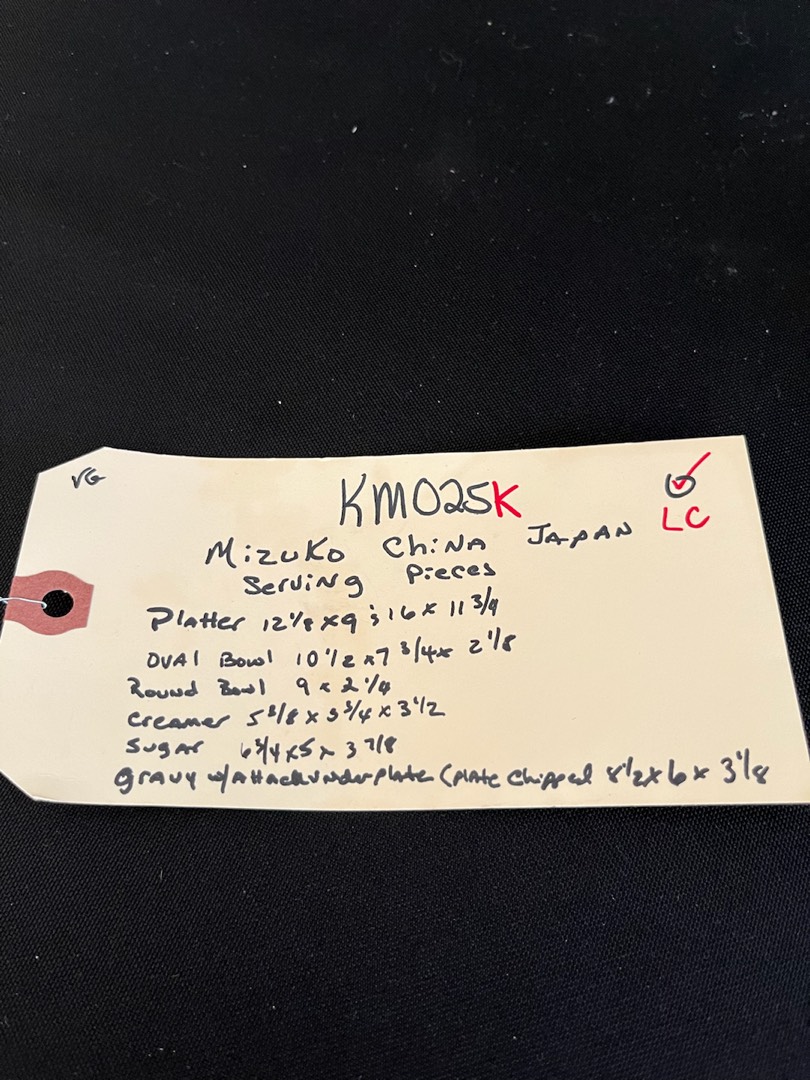 VG
KM025K
LC
Mizuko China Japan
Serving Pieces
Platter 12 1/8 x 9 ; 16 x 11 3/4
Oval Bowl 10 1/2 x 7 3/4 x 2 1/8
Round Bowl 9 x 2 1/4
Creamer 5 3/8 x 3 3/4 x 3 1/2
Sugar 6 3/4 x 5 x 3 7/8
Gravy w/Attach underplate (Plate Chipped 8 1/2 x 6 x 3 1/8